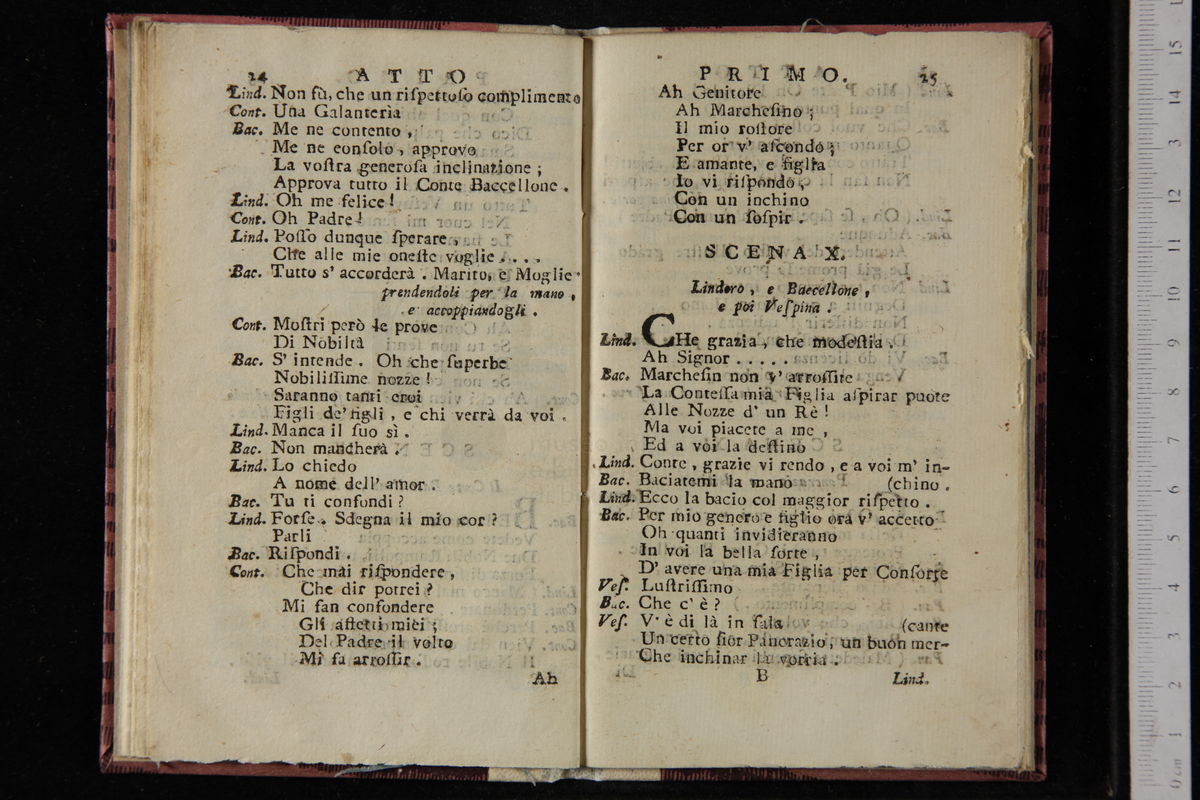 24 ATTO
Lind. Non fù, che un riſpettoſo complimento
Cont. Una Galanterìa
Bac. Me ne contento,
Me ne conſolo, approvo
La voſtra generoſa inclinazione;
Approva tutto il Conte Baccellone.
Lind. Oh me felice!
Cont. Oh Padre!
Lind. Poſſo dunque ſperare,
Che alle mie oneſte voglie....
Bac. Tutto s' accorderà. Marito, e Moglie
prendendoli per la mano,
e accoppiandogli.
Cont. Moſtri però le prove
Di Nobiltà
Bac. S' intende. Oh che ſuperbe
Nobiliſſime nozze!
Saranno tanti eroi
Figli de' figli, e chi verrà da voi.
Lind. Manca il ſuo sì.
Bac. Non mancherà.
Lind. Lo chiedo
A nome dell' amor.
Bac. Tu ti confondi?
Lind. Forſe. Sdegna il mio cor?
Parli
Bac. Riſpondi.
Cont. Che mai riſpondere,
Che dir potrei?
Mi fan confondere
Gli affetti miei;
Del Padre il volto
Mi fa arroſſir.
Ah
PRIMO. 25
Ah Genitore
Ah Marcheſino;
Il mio roſſore
Per or v' aſcondo;
E amante, e figlia
Io vi riſpondo,
Con un inchino
Con un ſoſpir.
SCENA X.
Lindoro, e Baccellone,
e poi Veſpina.
Lind. CHe grazia, che modeſtia.
Ah Signor.....
Bac. Marcheſin non v' arroſſite
La Conteſſa mia Figlia aſpirar puote
Alle Nozze d' un Rè!
Ma voi piacete a me,
Ed a voi la deſtino
Lind. Conte, grazie vi rendo, e a voi m' in-
Bac. Baciatemi la mano (chino.
Lind. Ecco la bacio col maggior riſpetto.
Bac. Per mio genero e figlio ora v' accetto
Oh quanti invidieranno
In voi la bella ſorte,
D' avere una mia Figlia per Conſorte
Veſ. Luſtriſſimo
Bac. Che c' è?
Veſ. V' è di là in ſala (cante
Un certo ſior Pancrazio, un buon mer-
Che inchinar la vorria.
B Lind.